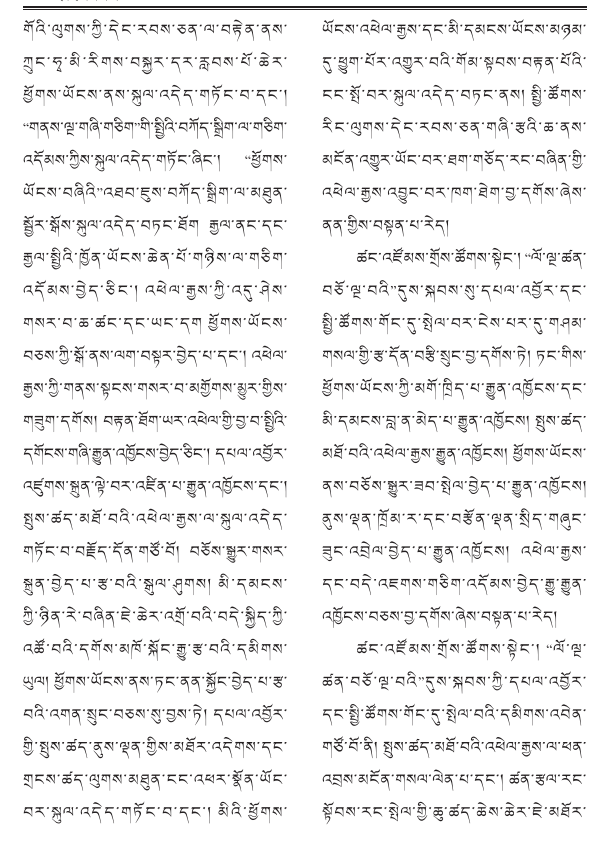 གོའི་ལུགས་ཀྱི་དེང་རབས་ཅན་ལ་བརྟེན་ནས་
ཀྲུང་ཧྭ་མི་རིགས་བསྐྱར་དར་རླབས་པོ་ཆེར་
ཕྱོགས་ཡོངས་ནས་སྐུལ་འདེད་གཏོང་བ་དང་།
“གནས་ལྔ་གཞི་གཅིག”གི་སྤྱིའི་བཀོད་སྒྲིག་ལ་གཅིག་
འདོམས་ཀྱིས་སྐུལ་འདེད་གཏོང་ཞིང་། “ཕྱོགས་
ཡོངས་བཞིའི”འཐབ་ཇུས་བཀོད་སྒྲིག་ལ་མཐུན་
སྦྱོར་སྒོས་སྐུལ་འདེད་བཏང་ཐོག རྒྱལ་ནང་དང་
རྒྱལ་སྤྱིའི་ཁྱོན་ཡོངས་ཆེན་པོ་གཉིས་ལ་གཅིག་
འདོམས་བྱེད་ཅིང་། འཕེལ་རྒྱས་ཀྱི་འདུ་ཤེས་
གསར་བ་ཆ་ཚང་དང་ཡང་དག ཕྱོགས་ཡོངས་
བཅས་ཀྱི་སྒོ་ནས་ལག་བསྟར་བྱེད་པ་དང་། འཕེལ་
རྒྱས་ཀྱི་གནས་སྟངས་གསར་བ་མགྱོགས་མྱུར་གྱིས་
གཟུག་དགོས། བརྟན་ཐོག་ཡར་འཕེལ་གྱི་བྱ་བ་སྤྱིའི་
དགོངས་གཞི་རྒྱུན་འཁྱོངས་བྱེད་ཅིང་། དཔལ་འབྱོར་
འཛུགས་སྐྲུན་ལྟེ་བར་འཛིན་པ་རྒྱུན་འཁྱོངས་དང་།
སྤུས་ཚད་མཐོ་བའི་འཕེལ་རྒྱས་ལ་སྐུལ་འདེད་
གཏོང་བ་བརྗོད་དོན་གཙོ་བོ། བཅོས་སྒྱུར་གསར་
སྐྲུན་བྱེད་པ་རྩ་བའི་སྒུལ་ཤུགས། མི་དམངས་
ཀྱི་ཉིན་རེ་བཞིན་ཇེ་ཆེར་འགྲོ་བའི་བདེ་སྐྱིད་ཀྱི་
འཚོ་བའི་དགོས་མཁོ་སྐོང་རྒྱུ་རྩ་བའི་དམིགས་
ཡུལ། ཕྱོགས་ཡོངས་ནས་ཏང་ནན་སྐྱོང་བྱེད་པ་རྩ་
བའི་འགན་སྲུང་བཅས་སུ་བྱས་ཏེ། དཔལ་འབྱོར་
གྱི་སྤུས་ཚད་ནུས་ལྡན་གྱིས་མཐོར་འདེགས་དང་
གྲངས་ཚད་ལུགས་མཐུན་ངང་འཕར་སྣོན་ཡོང་
བར་སྐུལ་འདེད་གཏོང་བ་དང་། མིའི་ཕྱོགས་
ཡོངས་འཕེལ་རྒྱས་དང་མི་དམངས་ཡོངས་མཉམ་
དུ་ཕྱུག་པོར་འགྱུར་བའི་གོམ་སྟབས་བརྟན་པོའི་
ངང་སྤོ་བར་སྐུལ་འདེད་བཏང་ནས། སྤྱི་ཚོགས་
རིང་ལུགས་དེང་རབས་ཅན་གཞི་རྩའི་ཆ་ནས་
མངོན་འགྱུར་ཡོང་བར་ཐག་གཅོད་རང་བཞིན་གྱི་
འཕེལ་རྒྱས་འབྱུང་བར་ཁག་ཐེག་བྱ་དགོས་ཞེས་
ནན་གྱིས་བསྟན་པ་རེད།
ཚང་འཛོམས་གྲོས་ཚོགས་སྟེང་། “ལོ་ལྔ་ཚན་
བཅོ་ལྔ་བའི”དུས་སྐབས་སུ་དཔལ་འབྱོར་དང་
སྤྱི་ཚོགས་གོང་དུ་སྤེལ་བར་ངེས་པར་དུ་གཤམ་
གསལ་གྱི་རྩ་དོན་བརྩི་སྲུང་བྱ་དགོས་ཏེ། ཏང་གིས་
ཕྱོགས་ཡོངས་ཀྱི་མགོ་ཁྲིད་པ་རྒྱུན་འཁྱོངས་དང་
མི་དམངས་བླ་ན་མེད་པ་རྒྱུན་འཁྱོངས། སྤུས་ཚད་
མཐོ་བའི་འཕེལ་རྒྱས་རྒྱུན་འཁྱོངས། ཕྱོགས་ཡོངས་
ནས་བཅོས་སྒྱུར་ཟབ་སྤེལ་བྱེད་པ་རྒྱུན་འཁྱོངས།
ནུས་ལྡན་ཁྲོམ་ར་དང་བརྩོན་ལྡན་སྲིད་གཞུང་
ཟུང་འབྲེལ་བྱེད་པ་རྒྱུན་འཁྱོངས། འཕེལ་རྒྱས་
དང་བདེ་འཇགས་གཅིག་འདོམས་བྱེད་རྒྱུ་རྒྱུན་
འཁྱོངས་བཅས་བྱ་དགོས་ཞེས་བསྟན་པ་རེད།
ཚང་འཛོམས་གྲོས་ཚོགས་སྟེང་། “ལོ་ལྔ་
ཚན་བཅོ་ལྔ་བའི”དུས་སྐབས་ཀྱི་དཔལ་འབྱོར་
དང་སྤྱི་ཚོགས་གོང་དུ་སྤེལ་བའི་དམིགས་འབེན་
གཙོ་བོ་ནི། སྤུས་ཚད་མཐོ་བའི་འཕེལ་རྒྱས་ལ་ཕན་
འབྲས་མངོན་གསལ་ལེན་པ་དང་། ཚན་རྩལ་རང་
སྟོབས་རང་སྤེལ་གྱི་ཆུ་ཚད་ཆེས་ཆེར་ཇེ་མཐོར་